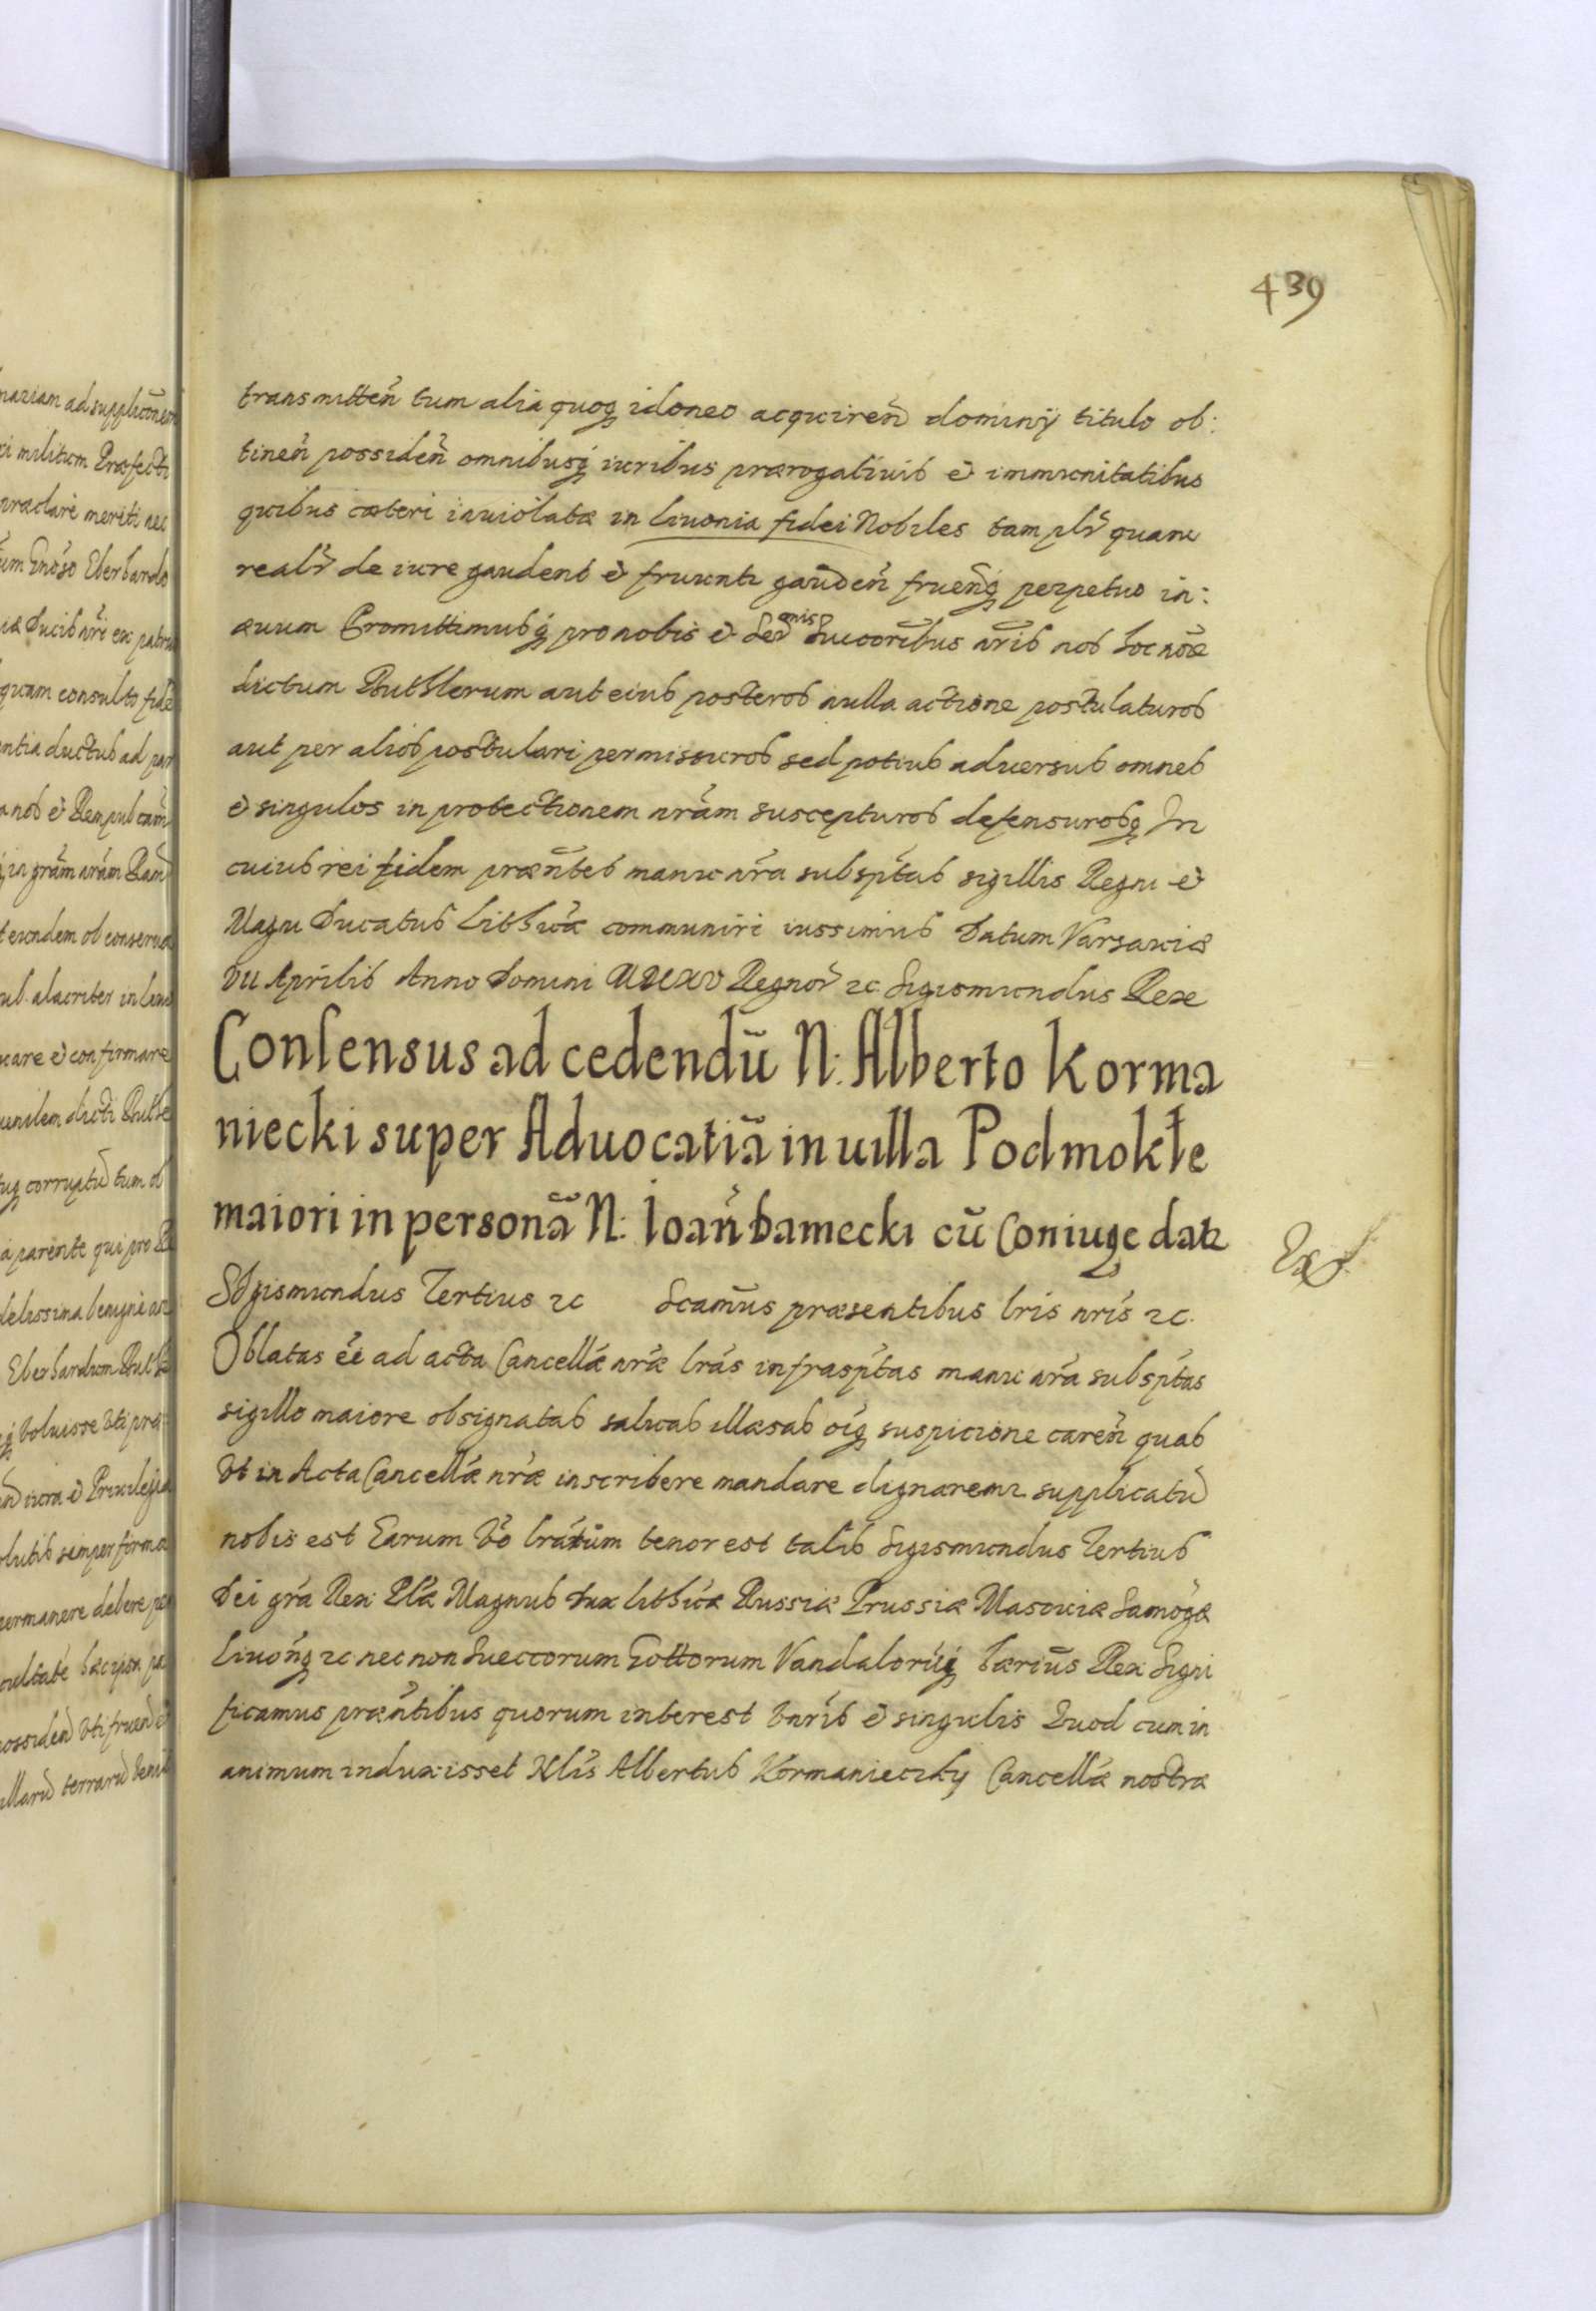 439
transmitteñ tum alia quoq idoneo acquireñ dominij titulo ob:
tineñ possideñ omnibusq iuribus prærogatiuis et immunitatibus
quibus cæteri inuiolatæ in Liuonia fidei Nobiles tam plr quam
realr de iure gaudent et fruuntr gaudeñ frueñq perpetuo in:
æuum Promittimusq pro nobis et Ser̃mis Succoribus nris nos hoc noĩe
dictum Buthlerum aut eius posteros nulla actione postulaturos
aut per alios postulari permissuros sed potius aduersus omnes
et singulos in protectionem nrãm suscepturos defensurosq In
cuius rei fidem præñtes manu nrã subsptas sigillis Regni et
Magni Ducatus Lithuæ communiri iussimus Datum Varsauiæ
VII Aprilis Anno Domini MDCXV Regnor̃ zc Sigismundus Rex
Consensus ad cedendũ N: Alberto Korma
niecki super Aduocatiã in uilla Podmokłe
maiori in personã N: Ioañ Damecki cũ Coniuge datr
Ext
Sigismundus Tertius zc Scamũs præsentibus lris nris zc.
Oblatas eẽ ad acta Cancellæ nræ lras infrasptas manu nra subsptas
sigillo maiore obsignatas saluas illæsas oiq suspicione careñ quas
Vt in Acta Cancellæ nræ inscribere mandare dignaremr supplicatũ
nobis est Earum Vo lrarum tenor est talis Sigismundus Tertius
Dei gra Rex Plæ Magnus Dux Lithuæ Russiæ Prussiæ Masouiæ Samogæ
Liuoñq zc nec non Sueccorum Gottorum Vandalorũq hærius Rex Signi
ficamus præñtibus quorum interest Vnris et singulis Quod cum in
animum induxisset Nlis Albertus Kormaniecky Cancellæ nostræ